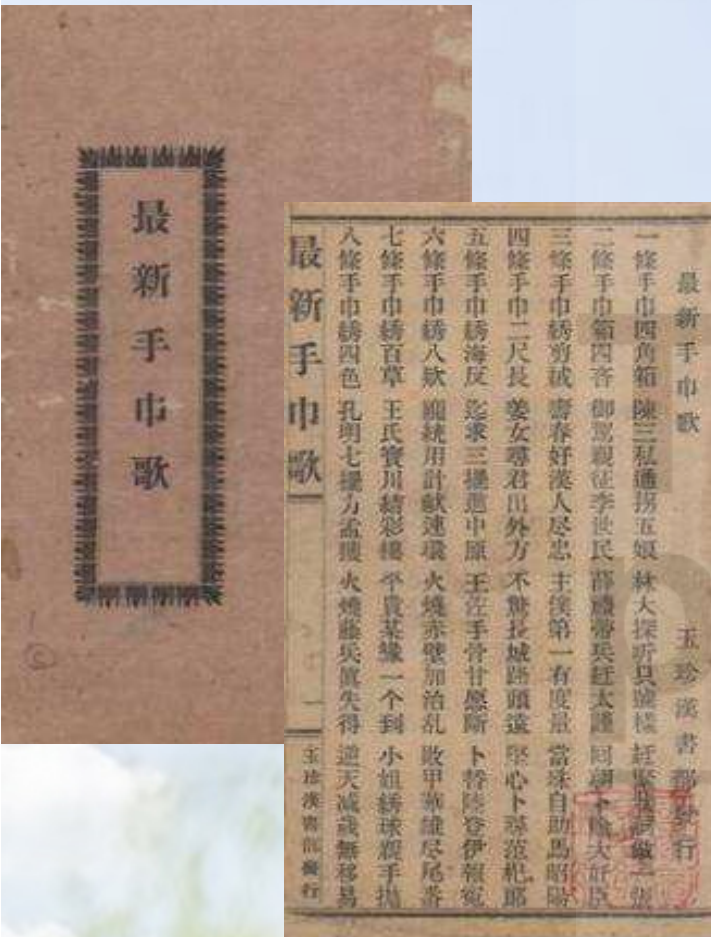 最新手巾歌
最新手巾歌
玉珍漢書部發行
一條手巾四角箱 陳三私通拐五娘 林大探听只號樣 赶緊
二條手巾箱四吝 御駕親征李世民 薛 帶兵赶太謹 回朝卜 大奸臣
三條手巾綉剪絨 壽春好漢人尽忠 主僕第一有度量 當殊自助馬昭陽
四條手巾二尺長 姜女尋君出外方 不驚長城路頭遠 堅心卜尋范杞郎
五條手巾綉海反 迄求三擺進中原 王佐手骨甘愿斷 卜替陸登伊報冤
六條手巾綉八欵 龐統用計献連環 火燒赤壁加治乱 敗甲華雄尽尾番
七條手巾綉百草 王氏寶川結彩樓 平貴某緣一个到 小姐綉球親手拋
八條手巾綉四色 孔明七擺力孟獲 火燒藤兵真失得 逆天减歲無移易
最新手巾歌
一
玉珍漢書部發行